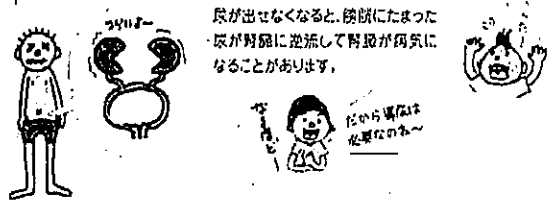 つらいよ〜
尿が出せなくなると、膀胱にたまった
尿が腎臓に逆流して腎臓が病気に
なることがあります。
なるほど
だから導尿は
必要なのね〜